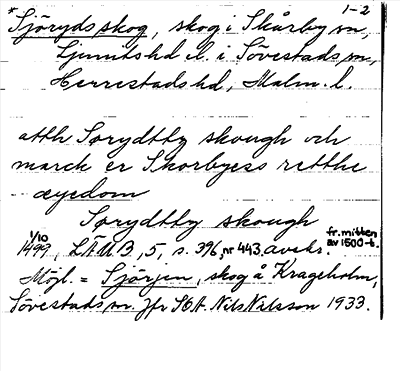 1-2
*Sjöryds skog, skog i Skårby sn
Ljunitshd el. i Sövestads sn,
Herrestads hd, Malm. l.
atth Sørydtby skough och
march er Skorbyess retthe
æyedom
Sørydtby skough
1/10 1499, LÄUB, 5, s. 396, nr 443. avskr. fr. mitten av 1500-t.
Möjl. = Sjörjen, skog å Krageholm,
Sövestads sn. Jfr SOA. Nils Nilsson 1933.